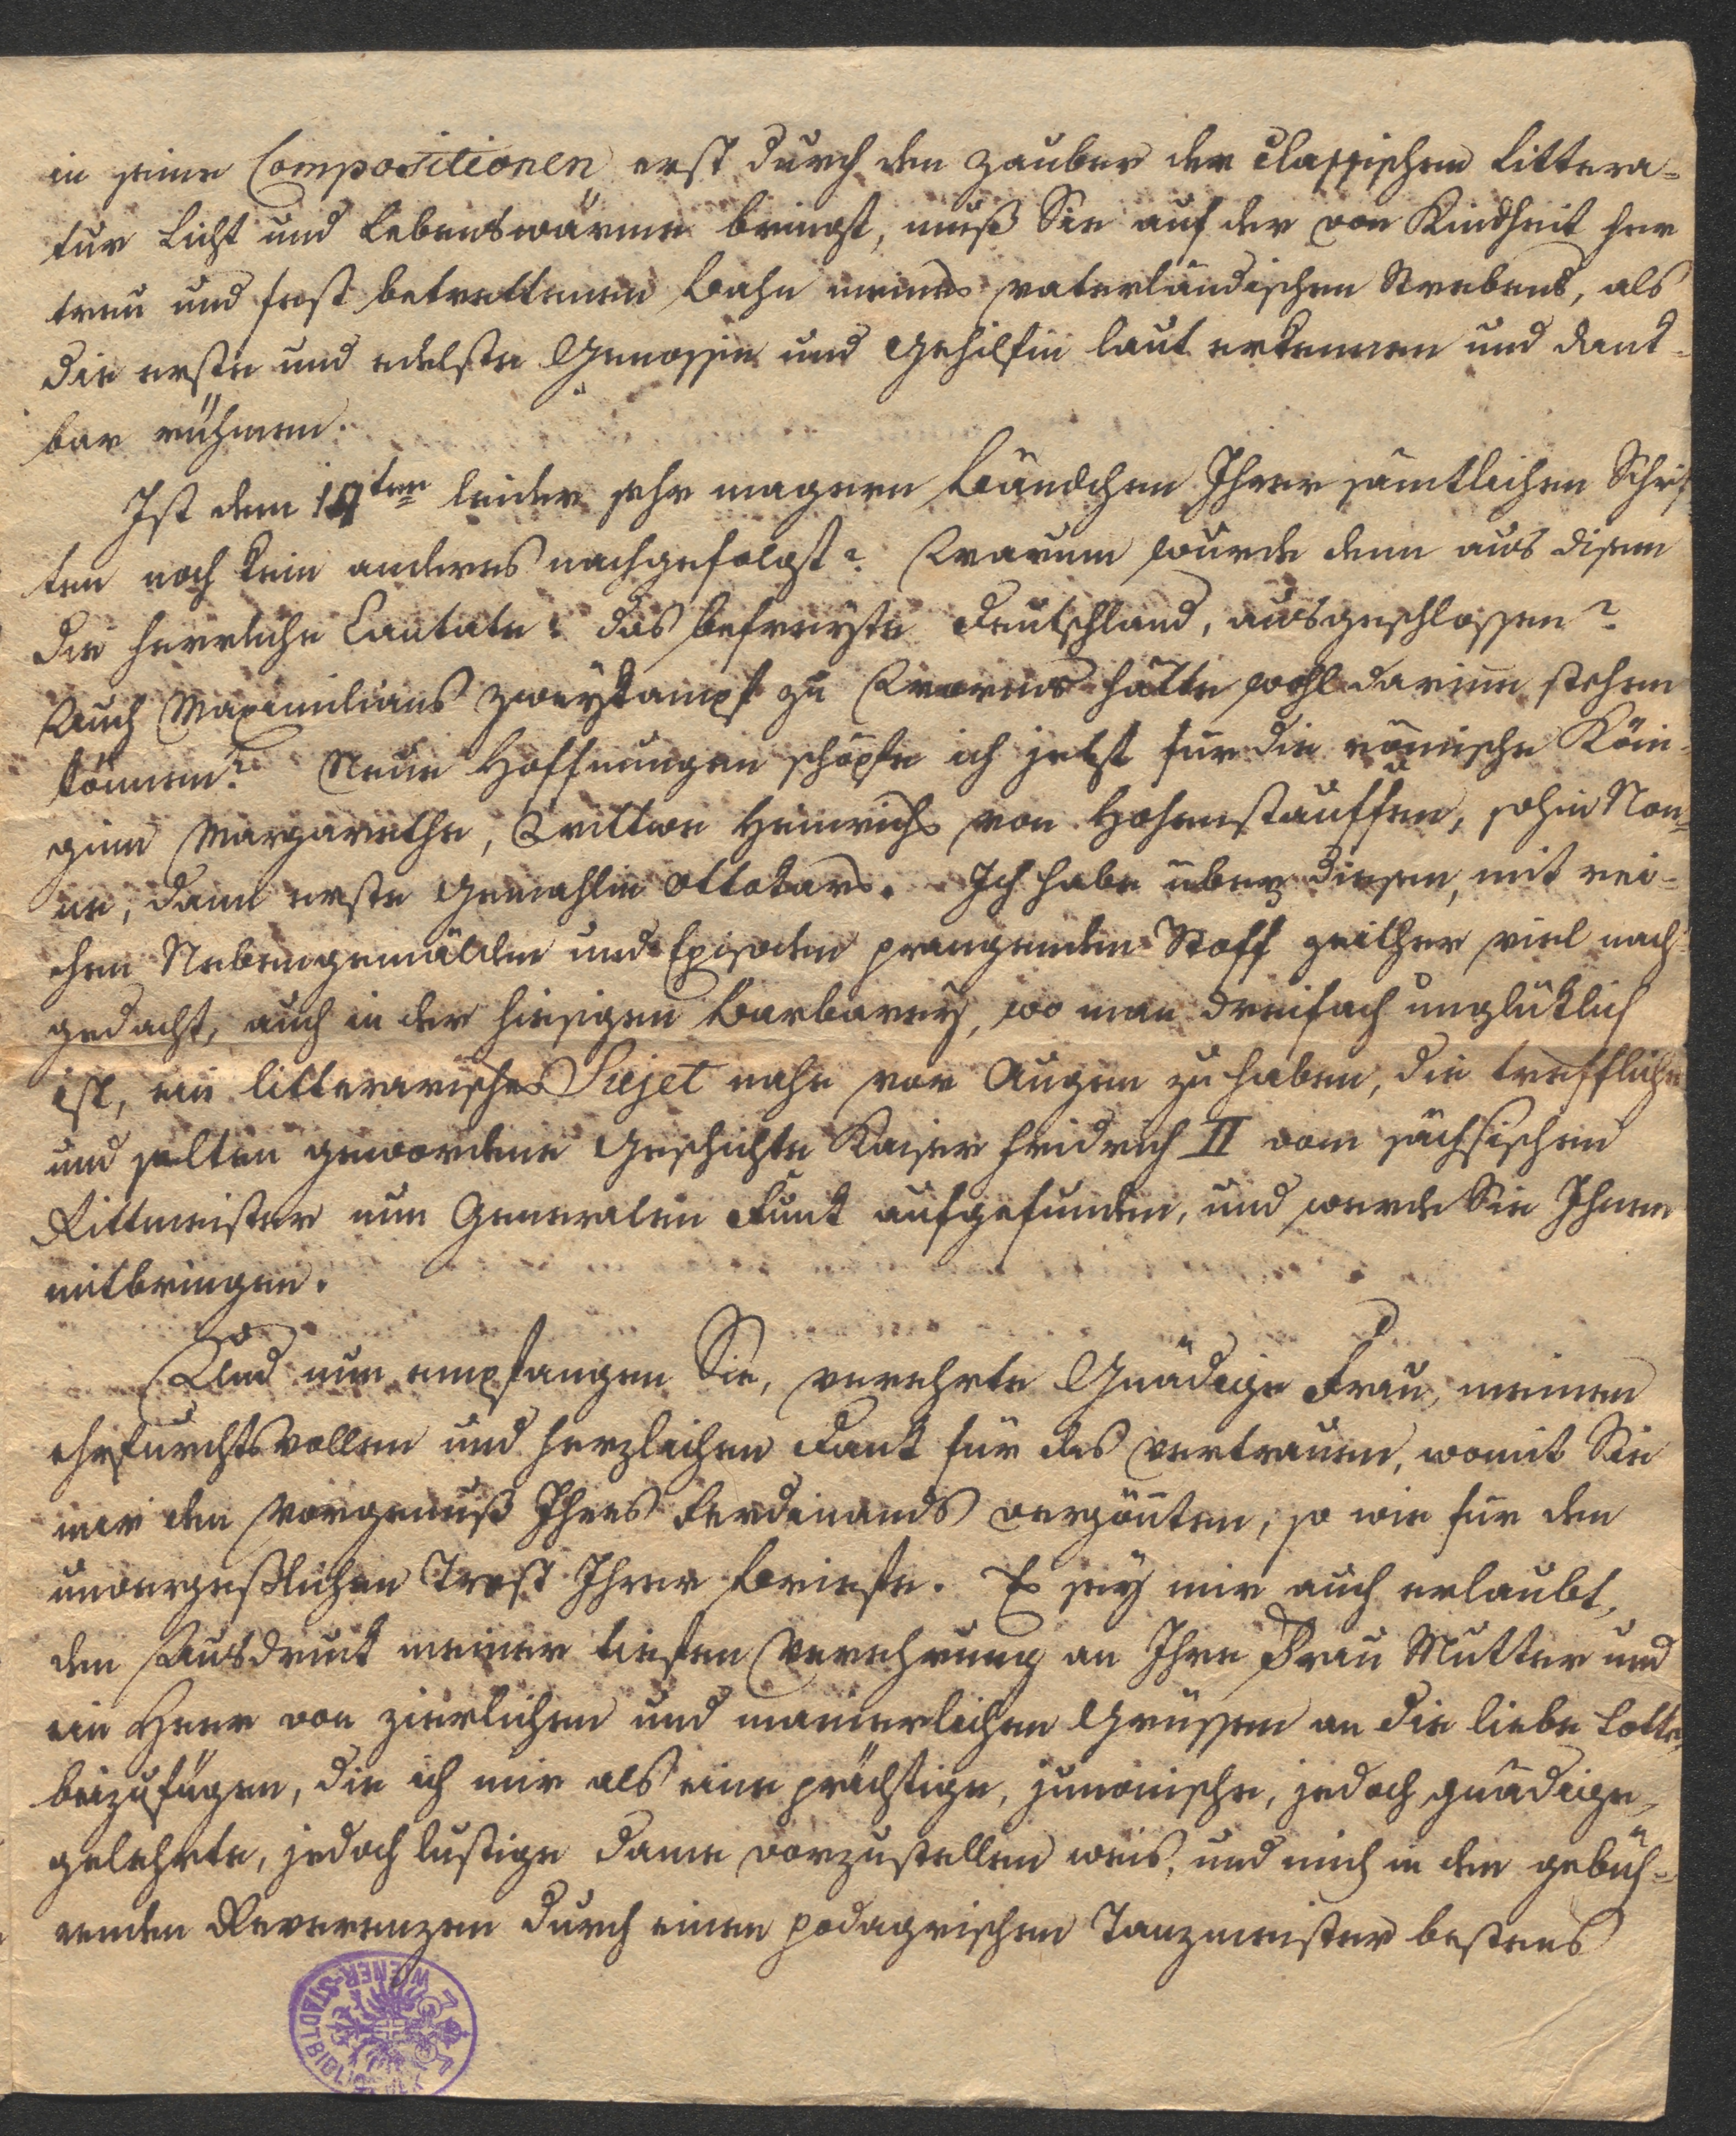 in seine Compositionen erst durch den Zauber der Classischen Littera-
tur Licht und Lebenswärme bringt, muß Sie auf der von Kindheit her
treu und fest betrettenen Bahn meines vaterländischen Strebens, als
die erste und edelste Genossin und Gehilfin laut erkennen und dank-
bar rühmen.
Ist dem 19ten leider sehr magern Bändchen Ihrer sämtlichen Schrif
ten noch kein anderes nachgefolgt? Warum wurde denn aus disem
die herrliche Cantate: das befreyte Deutschland, ausgeschlossen?
Auch Maximilians Zweykampf zu Worms hätte wohl darinn stehen
können? Neue Hoffnungen schöpfe ich jetzt für die römische Köni-
ginn Margarethe, Wittwe Heinrichs von Hohenstauffen, sohin Non-
ne, dann erste Gemahlin Ottokars. Ich habe über diesen, mit rei-
chen Nebengemälden und Episoden prangenden Stoff zeither viel nach-
gedacht, auch in der hiesigen Barbarey, wo man dreifach unglüklich
ist, ein litterarisches Sujet nahe vor Augen zu haben, die treffliche
und selten gewordene Geschichte Kaiser Fridrich II vom sächsischen
Rittmeister nun Generalen Funk aufgefunden, und werde Sie Ihnen
mitbringen.
Und nun empfangen Sie, verehrte Gnädige Frau, meinen
ehrfurchtsvollen und herzlichen Dank für das Vertrauen, womit Sie
mir den Vorgenuß Ihres Ferdinands vergönten, so wie für den
unvergeßlichen Trost Ihrer Briefe. Es sey mir auch erlaubt,
den Ausdruck meiner tiefen Verehrung an Ihre Frau Mutter und
ein Heer von zierlichen und manierlichen Grüssen an die liebe Lotte,
beizufügen, die ich mir als eine prächtige, junonische, jedoch gnädige,
gelehrte, jedoch lustige Dame vorzustellen weis, und mich in den gebüh-
renden Reverenzen durch einen podagrischen Tanzmeister bestens
WIENER-STADTBIBLIOTHEK